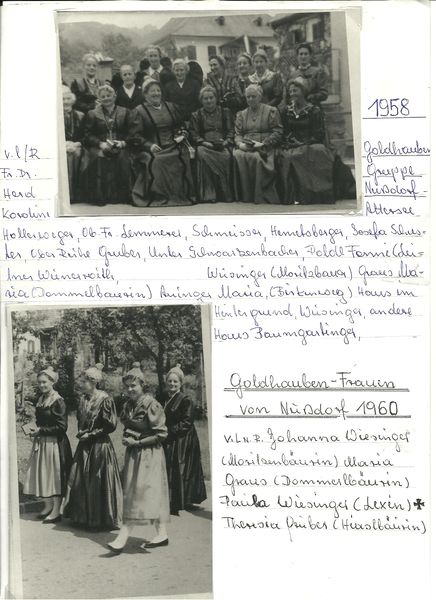 1958
v. l/R
Fr. Dr.
Herd
Karoline
Goldhauben
Gruppe
Nußdorf-
Attersee
Hollerweger, Ob. Fr. Lemmerer, Schmeisser, Hemetsberger, Josefa Schus-
ter, Obere Reihe Gruber, Unter Schwarzenbacher, Poldl Fanni (Lei-
tner Wienerroith, Wiesinger (Moritzbauer) Graus, Ma-
ria (Dommelbäuerin) Aninger Maria, (Birkenweg) Haus im
Hintergrund, Wiesinger, andere
Haus Baumgartinger,
Goldhauben-Frauen
von Nußdorf 1960
v.l.n.R. Johanna Wiesinger
(Moritzenbäurin) Maria
Graus (Dommelbäurin)
Paula Wiesinger (Lexin) ✝
Theresia Gruber (Hiaslbäurin)